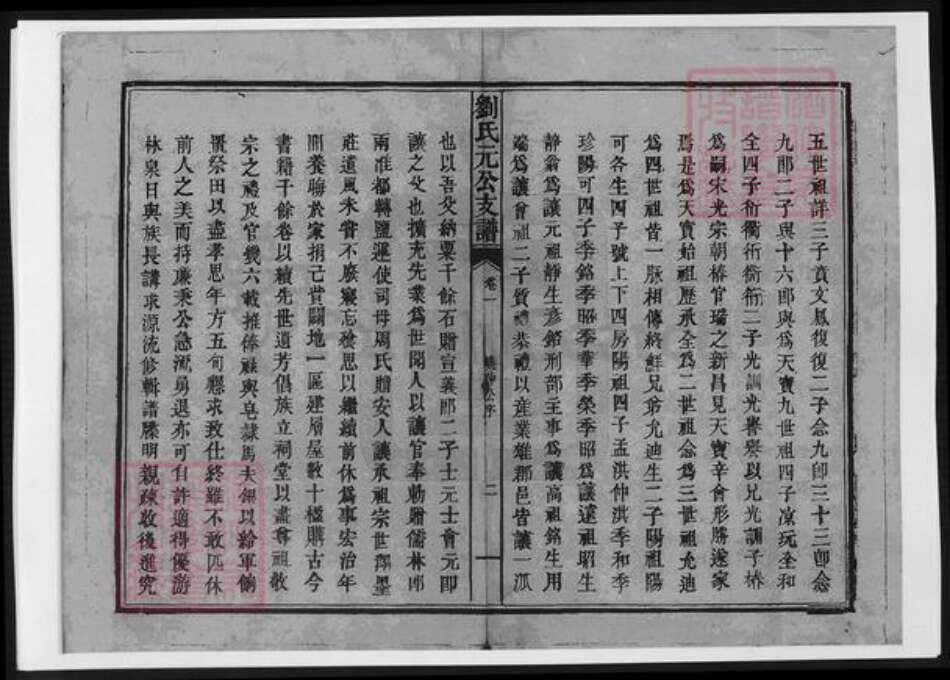 五世祖詳三子賁文鳳復復二子念九郎三十三郎念
九郎二子與十六郎與爲天寶九世祖四子凉玩全和
全四子衍衢衎衞衎二子光訓光譽譽以兄光訓子椿
爲嗣宋光宗朝椿官瑞之新昌見天寶辛會形勝遂家
焉是爲天寶始祖歷承全爲二世祖念爲三世祖允迪
爲四世祖昔一脉相傳終鮮兄弟允迪生二子陽祖陽
可各生四子號上下四房陽祖四子孟洪仲洪季和季
珍陽可四子季銘季昭季華季榮季昭爲讓遠祖昭生
靜翁爲讓元祖靜生彦銘刑部主事爲讓高祖銘生用
端爲讓曾祖二子質禮恭禮以産業雄郡邑皆讓一派
劉氏元公支譜
卷一
公序
二
也以吾父納粟千餘石贈宣義郎二子士元士會元即
讓之父也擴充先業爲世聞人以讓官奉勅贈儒林郎
兩淮都轉鹽運使司母周氏贈安人讓承祖宗世澤墨
莊遺風未甞不廢寢忘飱思以繼續前休爲事宏治年
間養聯於家捐己貲闢地一區建層屋數十楹購古今
書籍千餘卷以續先世遺芳倡族立祠堂以盡尊祖敬
宗之禮及官幾六載推俸祿與皂隸馬夫銀以給軍餉
置祭田以盡孝思年方五旬懇求致仕終雖不敢匹休
前人之美而持廉秉公急流勇退亦可自許適得優游
林泉日與族長講求源流修輯譜牒明親疎敦後進究